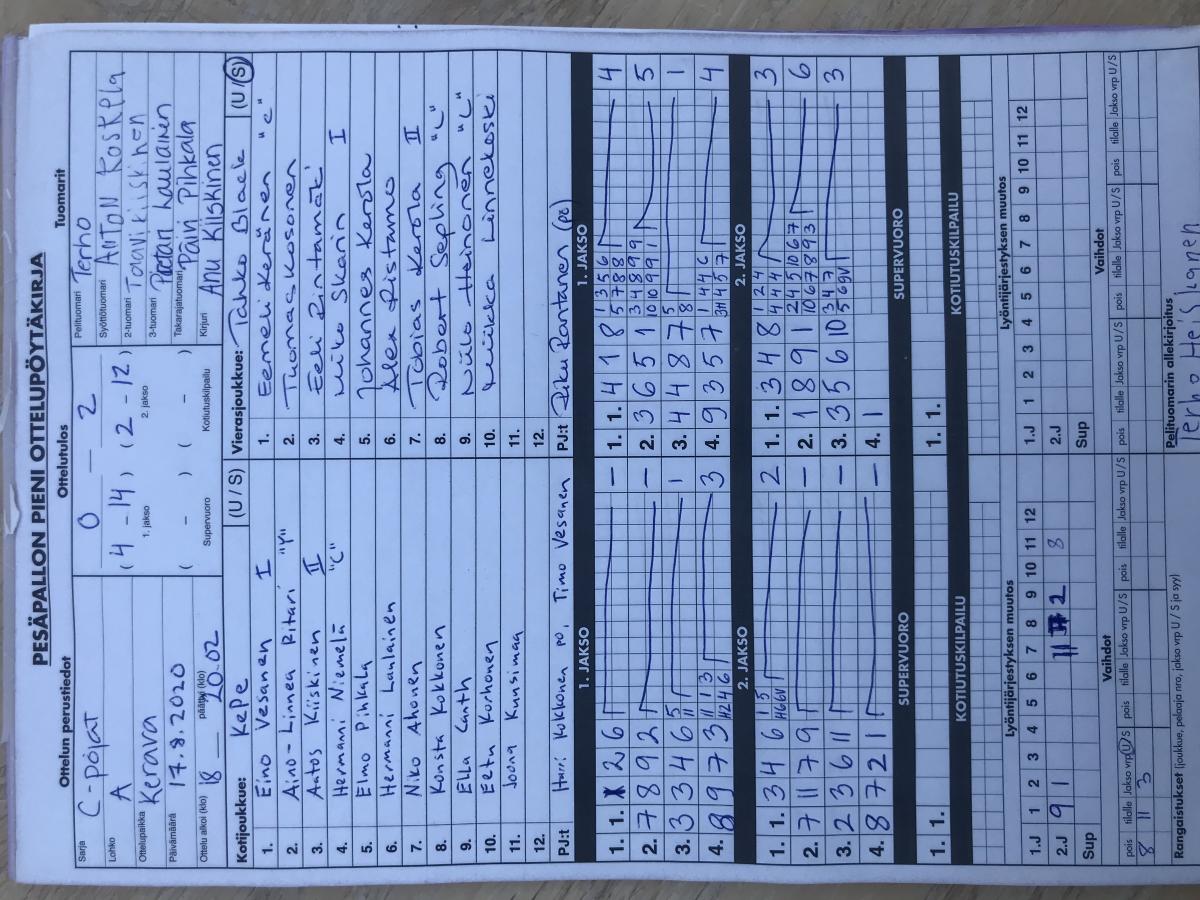 PESÄPALLON PIENI OTTELUPÖYTÄKIRJA
Ottelun perustiedot
Sarja C-pojat
Lohko A
Ottelupaikka Kerava
Päivämäärä 17.8.2020
Ottelu alkoi (klo) 18 päättyi (klo) 20.02
Ottelutulos
0 — 2
( 4 - 14 ) ( 2 - 12 )
1. jakso 2. jakso
( - ) ( - )
Supervuoro Kotiutuskilpailu
Tuomarit
Pelituomari Terho
Syöttötuomari Anton Koskela
2-tuomari Toavi Kiiskinen
3-tuomari Laulainen
Takarajatuomari Päivi Pihkala
Kirjuri Anu Kiiskinen
Kotijoukkue: KePe (U / S)
1. Eino Vesanen I
2. Aino-Linnea Pitari "Y"
3. Aatos Kiiskinen II
4. Hermanni Niemelä "C"
5. Elmo Pihkala
6. Hermanni Laulainen
7. Niko Ahonen
8. Konsta Kokkonen
9. Ella Lanth
10. Eetu Korhonen
11. Joona Kuusimaa
12.
PJ:t Harri Kokkonen po, Timo Vesanen
Vierasjoukkue: Tahko Black (U / S)
1. Eemeli Keränen "C"
2. Tuomas Kosonen
3. Eeli Rintamäki
4. Miko Skarin I
5. Johannes Kerola
6. Alex Ristamo
7. Tobias Kerola II
8. Robert Sepling "C"
9. Niilo Heinonen "C"
10. Miikka Linnekoski
11.
12.
PJ:t Riku Rantanen (po)
1. JAKSO
1. 1. 1 2 6 —
2. 7 8 9 2 —
3. 3 3 4 6 5 11 1
4. 8 9 7 3 11 1 3 H2 4 6 3
2. JAKSO
1. 1. 3 4 6 1 5 H6 6V 2
2. 7 11 7 9 —
3. 2 3 6 11 —
4. 8 7 2 1 —
SUPERVUORO
1. 1.
KOTIUTUSKILPAILU
1. JAKSO
1. 1. 4 1 8 1 3 5 6 5 7 8 8 4
2. 3 6 5 1 3 4 8 9 9 10 10 9 9 1 5
3. 4 4 8 7 5 8 1
4. 9 3 5 7 1 4 4 6 3H 4 5 7 4
2. JAKSO
1. 1. 3 4 8 1 2 4 4 4 4 3
2. 1 8 9 1 2 4 5 10 6 7 10 6 7 8 9 3 6
3. 3 5 6 10 3 4 7 5 7 6 9V 3
4. 1
SUPERVUORO
1. 1.
KOTIUTUSKILPAILU
Lyöntijärjestyksen muutos
1 2 3 4 5 6 7 8 9 10 11 12
1.J
2.J 9 1 11 2 8
Sup
Vaihdot
pois tilalle Jakso vrp U / S pois tilalle Jakso vrp U / S pois tilalle Jakso vrp U / S
8 11 3
Rangaistukset (joukkue, pelaaja nro, jakso vrp U / S ja syy)
Lyöntijärjestyksen muutos
1 2 3 4 5 6 7 8 9 10 11 12
1.J
2.J
Sup
Vaihdot
pois tilalle Jakso vrp U / S pois tilalle Jakso vrp U / S pois tilalle Jakso vrp U / S
Pelituomarin allekirjoitus
Terho Heiskanen